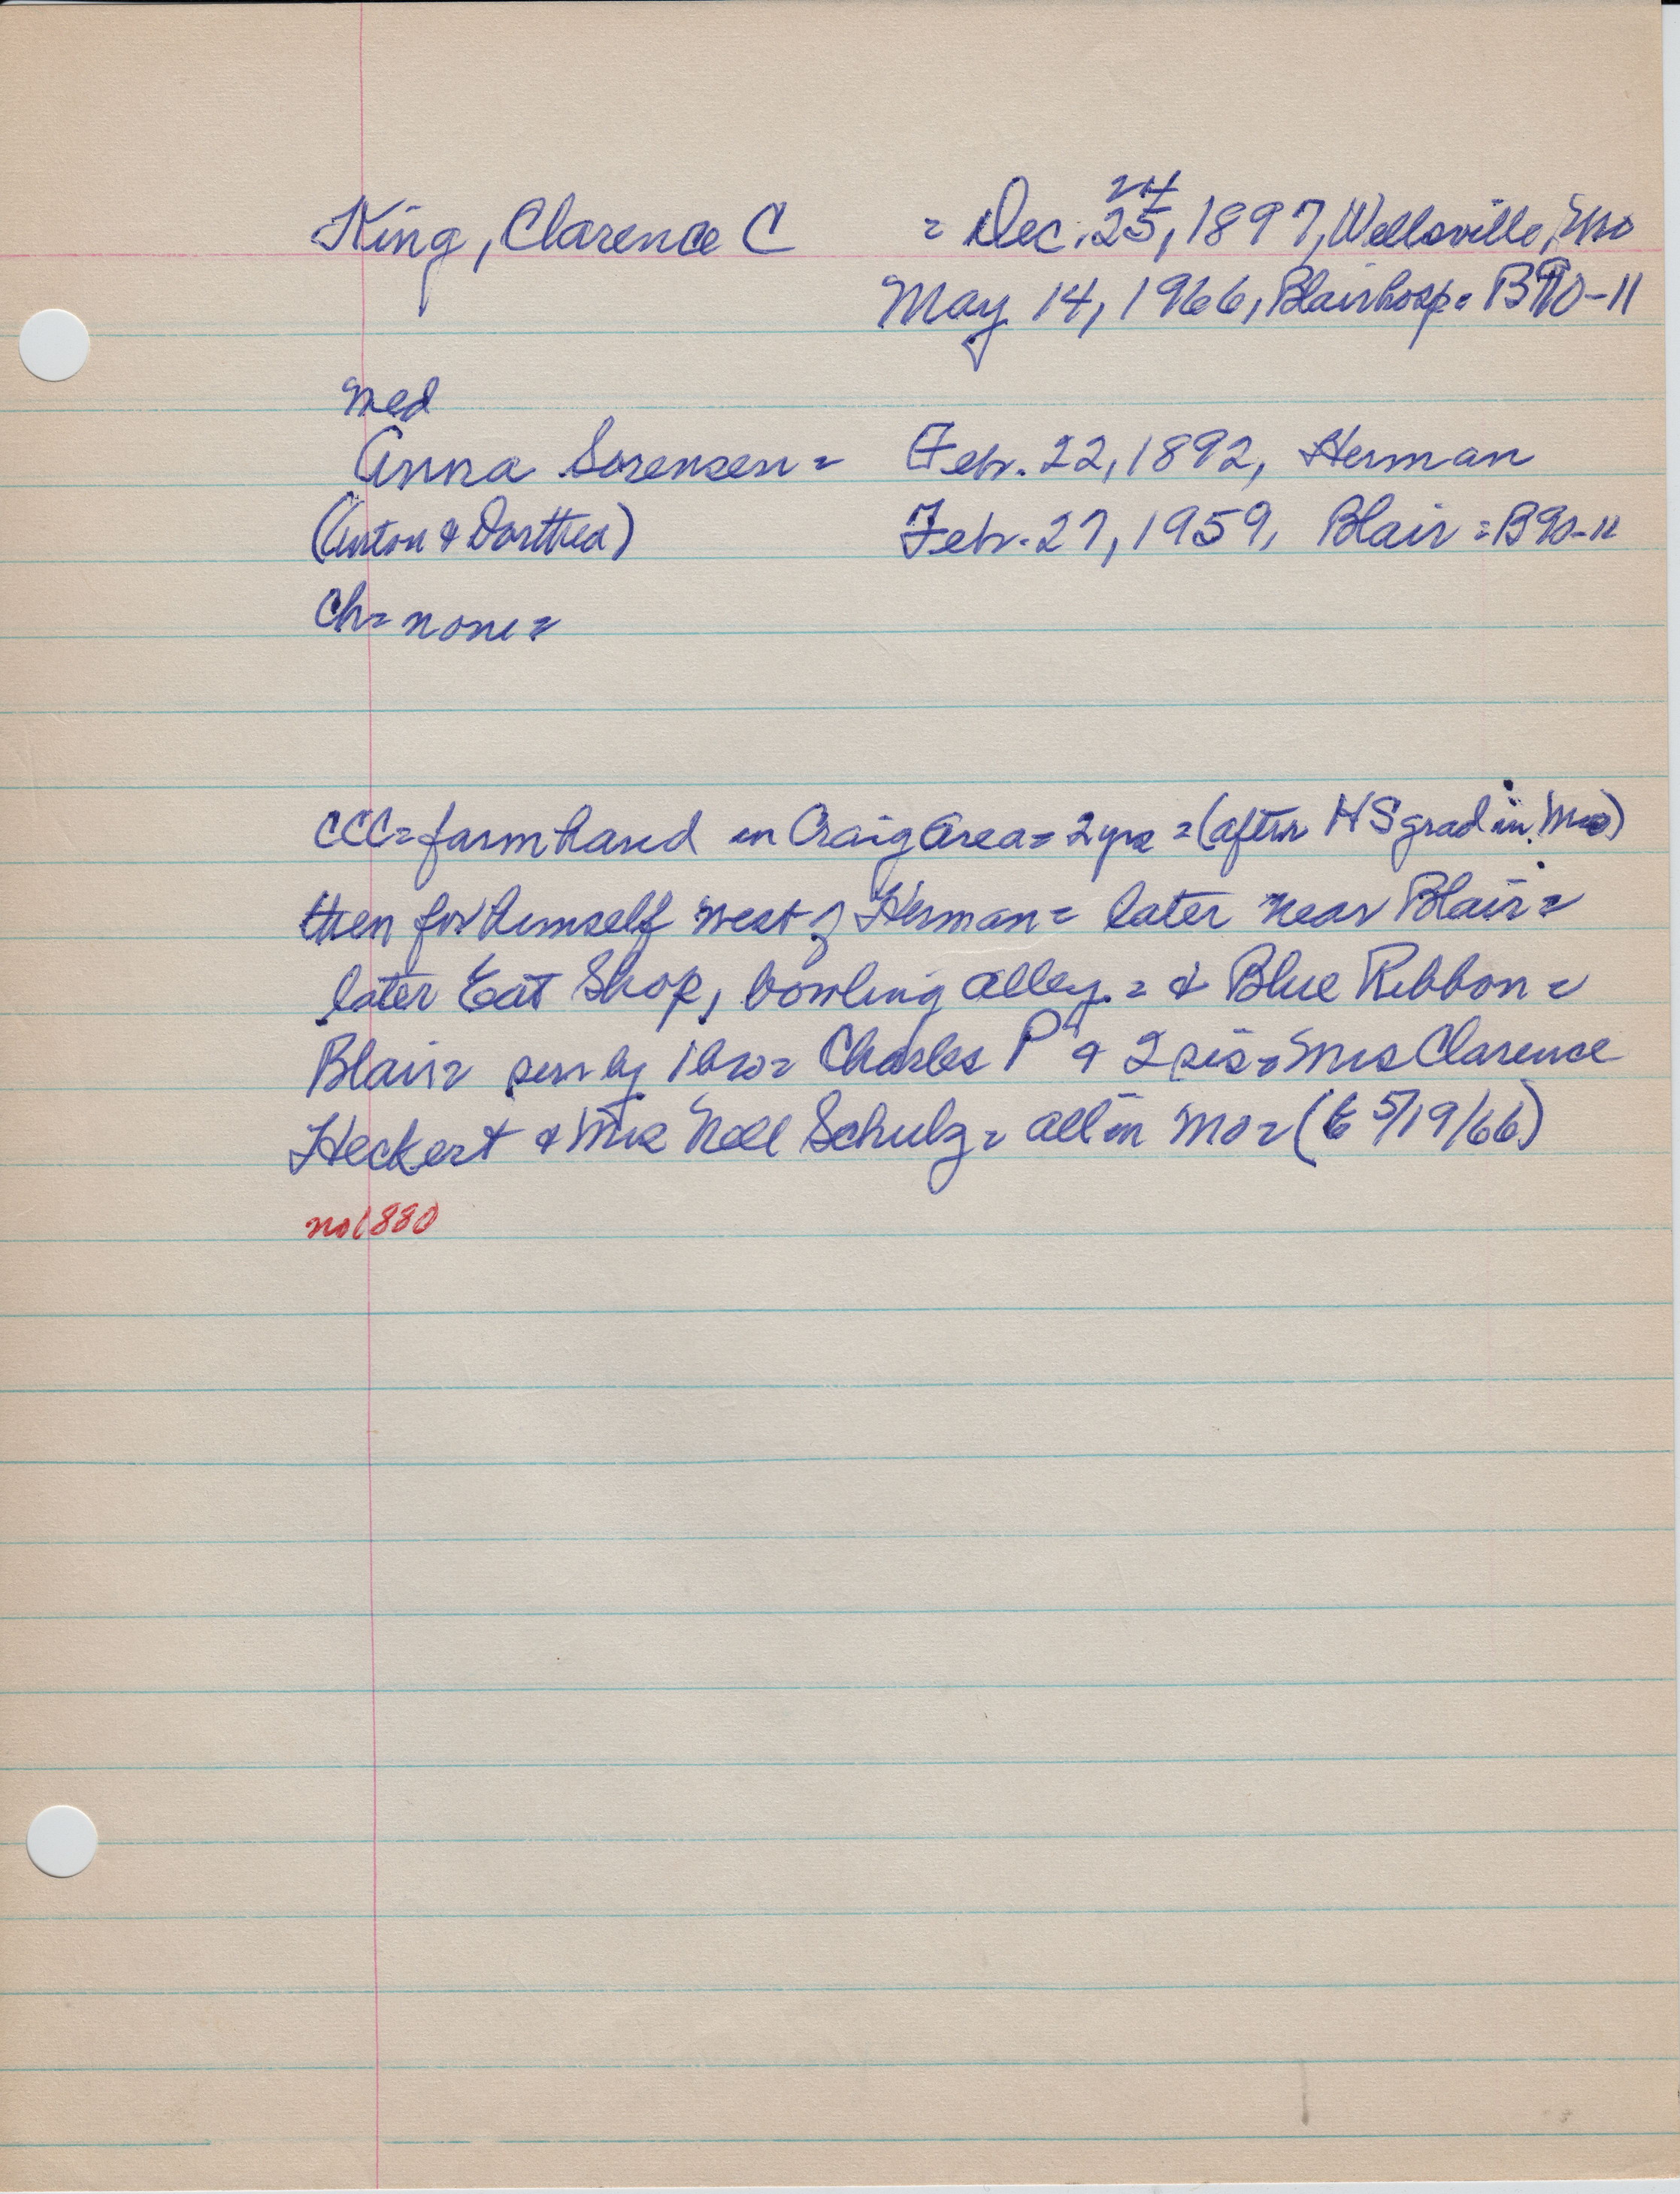 King, Clarence C = Dec. 25, 1897, Wellsville, Mo
24
May 14, 1966, Blair hosp = B90-11
med
Anna Sorensen = Febr. 22, 1892, Herman
(Anton & Dorthea) Febr. 27, 1959, Blair = B90-11
Ch = none =
CCC = farmhand in Craig Area = 2 yrs = (after HS grad in Mo)
then for himself west of Herman = later near Blair =
later Eat Shop, bowling alley = & Blue Ribbon =
Blair = surv by 1 bro = Charles P & 2 sis = Mrs Clarence
Heckert & Mrs Nell Schulz = all in Mo = (E 5/19/66)
no 1880